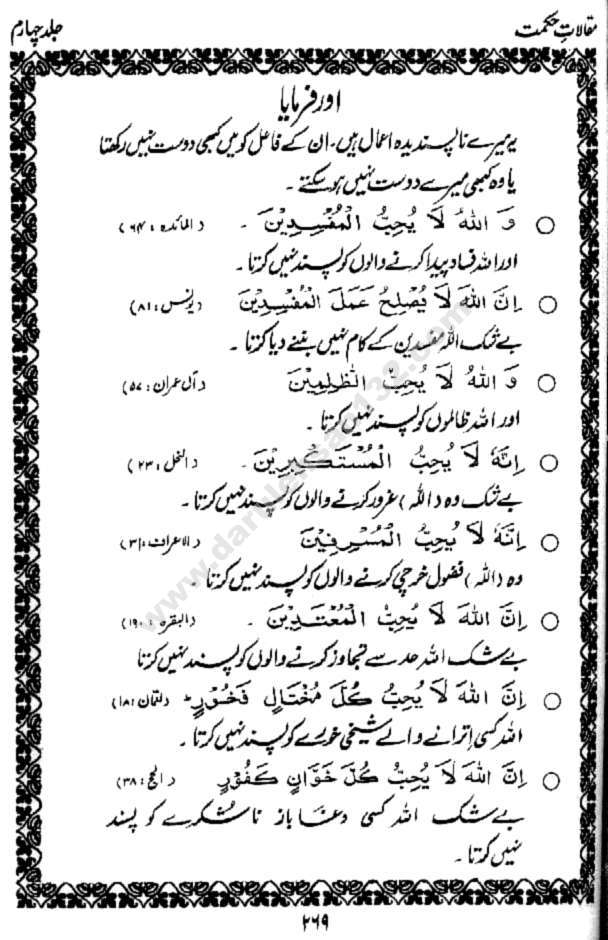 مقالاتِ حکمت
جلد چہارم
اور فرمایا
یہ میرے ناپسندیدہ اعمال ہیں۔ ان کے فاعل کو میں کبھی دوست نہیں رکھتا
یا وہ کبھی میرے دوست نہیں ہو سکتے ۔
○ وَ اللّٰهُ لَا يُحِبُّ الْمُفْسِدِيْنَ ۔ (المائدہ : ۶۴)
اور اللہ فساد پیدا کرنے والوں کو پسند نہیں کرتا ۔
○ اِنَّ اللّٰهَ لَا يُصْلِحُ عَمَلَ الْمُفْسِدِيْنَ (یونس : ۸۱)
بے شک اللہ مفسدین کے کام نہیں بننے دیا کرتا ۔
○ وَ اللّٰهُ لَا يُحِبُّ الظّٰلِمِيْنَ (آل عمران : ۵۷)
اور اللہ ظالموں کو پسند نہیں کرتا ۔
○ اِنَّهٗ لَا يُحِبُّ الْمُسْتَكْبِرِيْنَ ۔ (النحل : ۲۳)
بے شک وہ (اللہ) غرور کرنے والوں کو پسند نہیں کرتا ۔
○ اِنَّهٗ لَا يُحِبُّ الْمُسْرِفِيْنَ (الاعراف : ۳۱)
وہ (اللہ) فضول خرچی کرنے والوں کو پسند نہیں کرتا ۔
○ اِنَّ اللّٰهَ لَا يُحِبُّ الْمُعْتَدِيْنَ ۔ (البقرہ : ۱۹۰)
بے شک اللہ حد سے تجاوز کرنے والوں کو پسند نہیں کرتا
○ اِنَّ اللّٰهَ لَا يُحِبُّ كُلَّ مُخْتَالٍ فَخُوْرٍ ۔ (لقمان : ۱۸)
اللہ کسی اِترانے والے شیخی خورے کو پسند نہیں کرتا ۔
○ اِنَّ اللّٰهَ لَا يُحِبُّ كُلَّ خَوَّانٍ كَفُوْرٍ (الحج : ۳۸)
بے شک اللہ کسی دغا باز ناشکرے کو پسند
نہیں کرتا ۔
۲۶۹